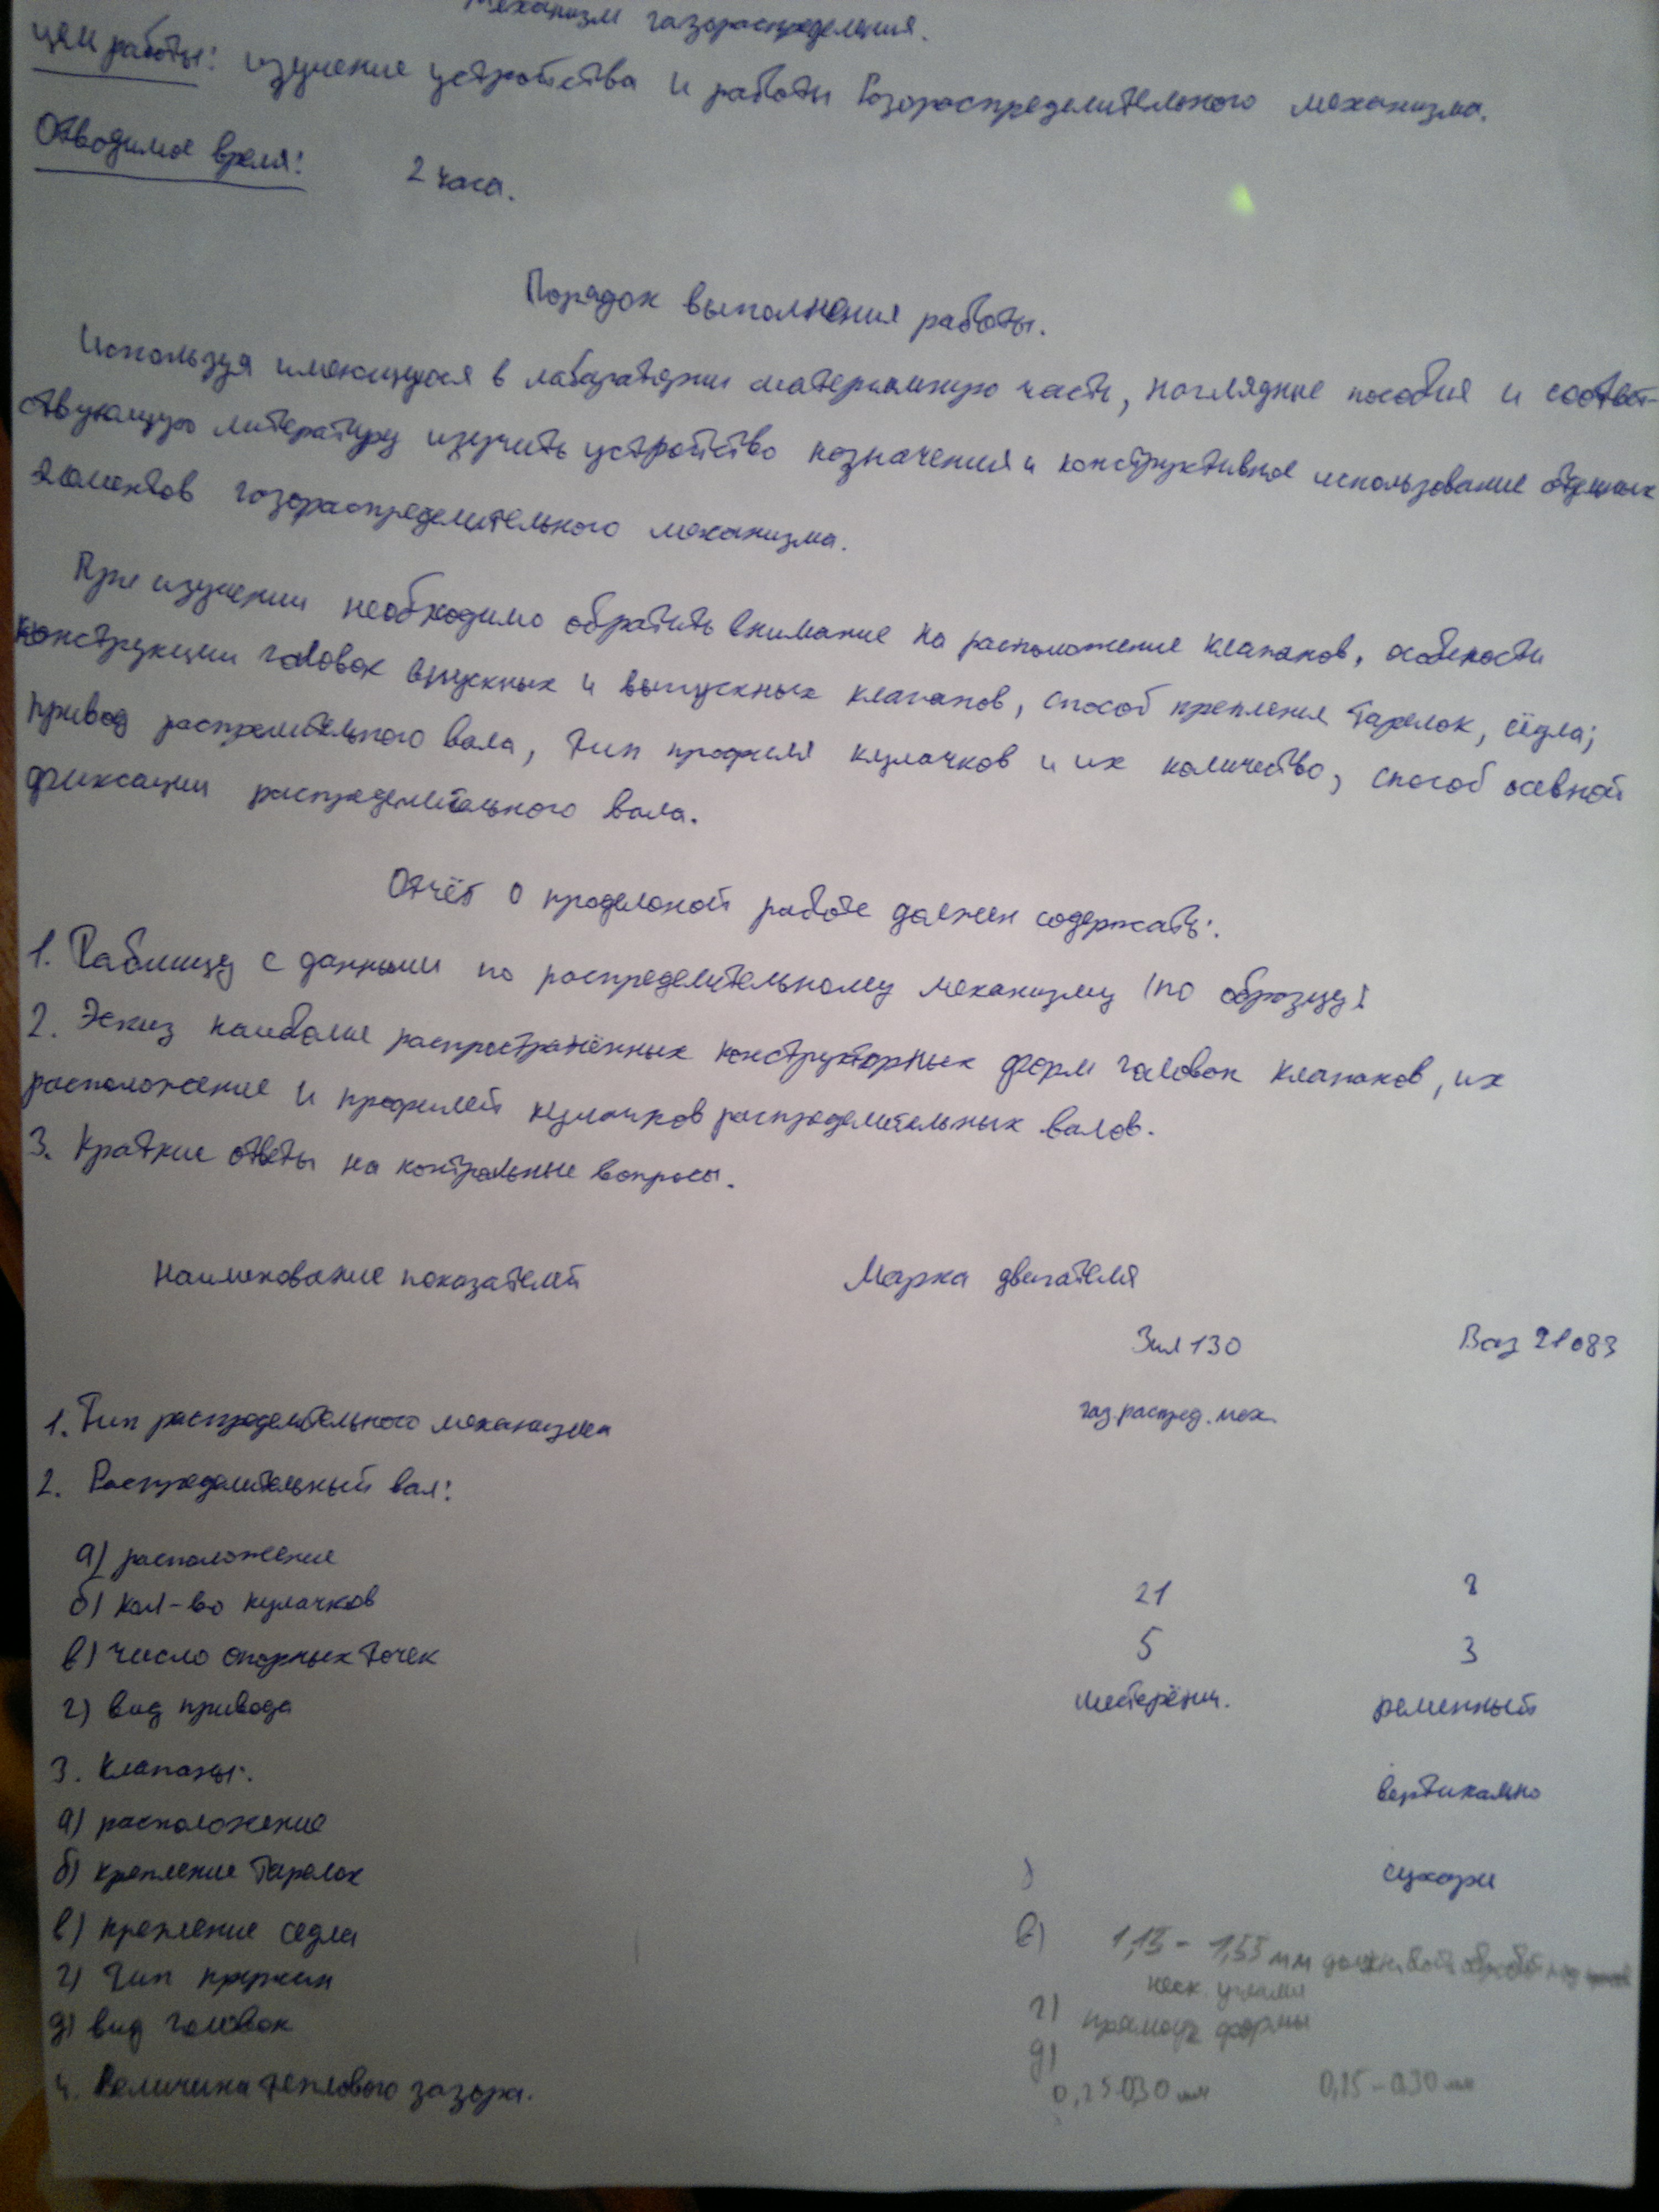 Механизм газораспределения.
Цели работы: изучение устройства и работы газораспределительного механизма.
Отводимое время: 2 часа.
Порядок выполнения работы.
Используя имеющуюся в лабаратории материальную часть, наглядные пособия и соответ-
ствующую литературу изучить устройство назначения и конструктивное использование отдельных
элементов газораспределительного механизма.
При изучении необходимо обратить внимание на расположение клапанов, особености
конструкции головок впускных и выпускных клапанов, способ крепления тарелок, сёдла;
привод распределительного вала, тип профиля кулачков и их количество, способ осевной
фиксации распределительного вала.
Отчёт о проделаной работе должен содержать:
1. Таблицу с данными по распределительному механизму (по образцу)
2. Эскиз наиболие распространённых конструкторных форм головок клапанов, их
расположение и профилей кулачков распределительных валов.
3. Краткие ответы на контрольные вопросы.
Наименование показателей Марка двигателя
Зил 130 Ваз 21083
1. Тип распределительного механизма газ.распред. мех.
2. Распределительный вал:
а) расположение
б) кол-во кулачков 21 8
в) число опорных точек 5 3
г) вид привода шестерёнч. ременный
3. Клапаны:
вертикально
а) расположение
б) крепление тарелок сухари
в) крепление седла в) 1,15 - 1,55 мм
неск. углами
г) Тип пружин г) прямоуг формы
д) вид головок д)
4. Величина теплового зазора. 0,25-0,30 мм 0,25-0,30 мм